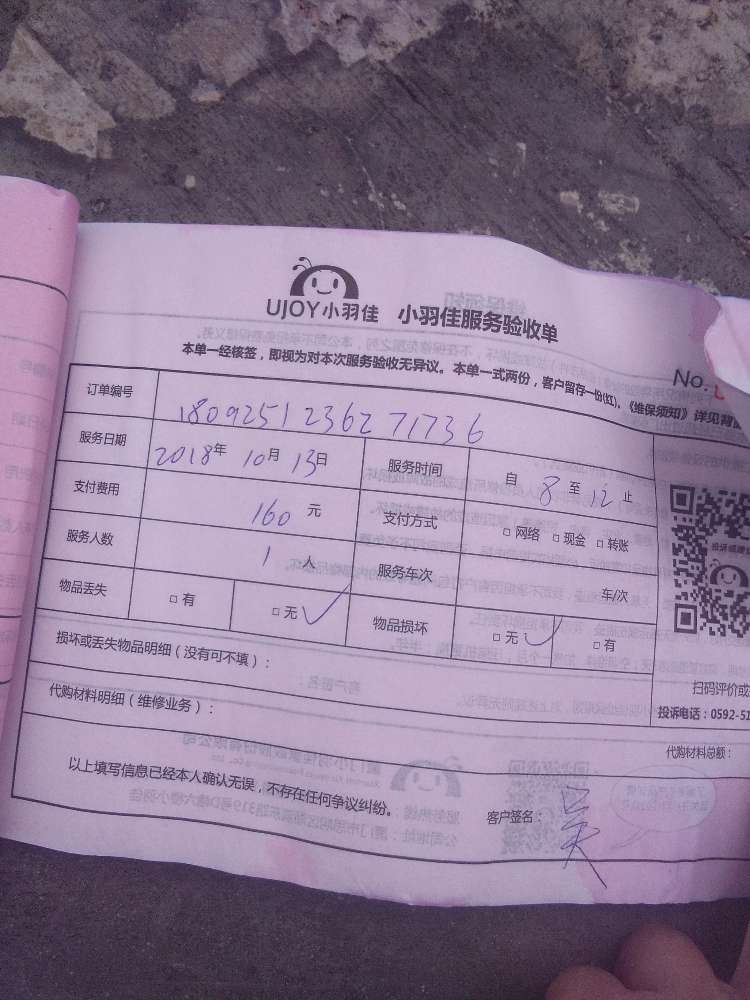 UJOY小羽佳 小羽佳服务验收单
No.
本单一经核签，即视为对本次服务验收无异议。本单一式两份，客户留存一份(红)。《维保须知》详见背
订单编号 1809251236271736
服务日期 2018年 10月 13日 服务时间 自 8 至 12 止
支付费用 160 元 支付方式 □ 网络 □ 现金 □ 转账
服务人数 1 人 服务车次 车/次
物品丢失 □ 有 □ 无 ✓ 物品损坏 □ 无 ✓ □ 有
投诉或
损坏或丢失物品明细（没有可不填）：
扫码评价或
代购材料明细（维修业务）：
投诉电话：0592-51
代购材料总额：
以上填写信息已经本人确认无误，不存在任何争议纠纷。
客户签名： 吴